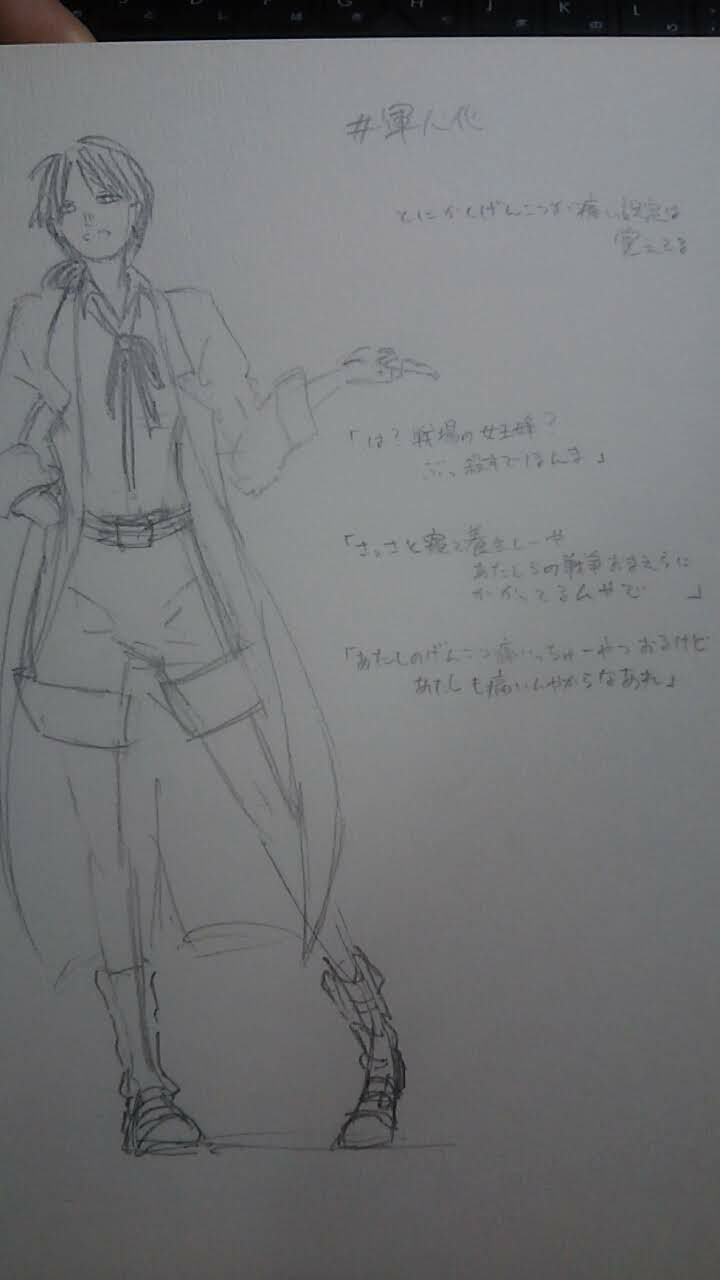 #軍人化
とにかくげんこつが痛い設定は
覚えてる
「は？戦場の女王蜂？
ぶっ殺すでほんま」
「さっさと寝て養生しーや
あたしらの戦争おまえらに
かかってるんやで」
「あたしのげんこつ痛いっちゅーやつおるけど
あたしも痛いんやからなあれ」